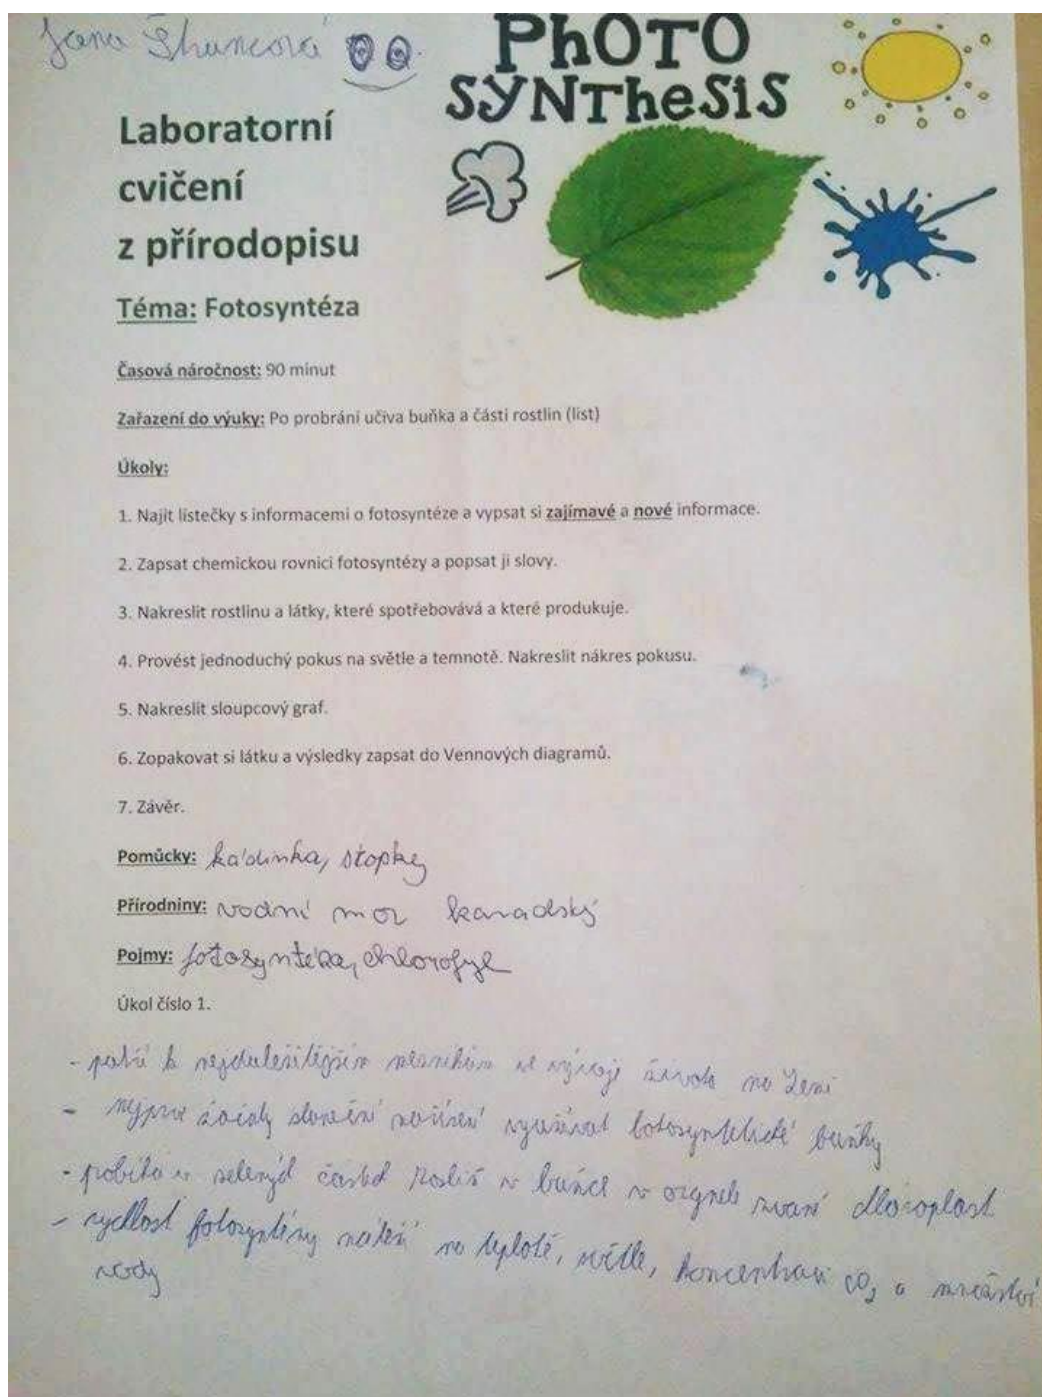 Jana
PhOTO
SYNTheSiS
Laboratorní
cvičení
z přírodopisu
Téma: Fotosyntéza
Časová náročnost: 90 minut
Zařazení do výuky: Po probrání učiva buňka a části rostlin (list)
Úkoly:
1. Najít lístečky s informacemi o fotosyntéze a vypsat si zajímavé a nové informace.
2. Zapsat chemickou rovnici fotosyntézy a popsat ji slovy.
3. Nakreslit rostlinu a látky, které spotřebovává a které produkuje.
4. Provést jednoduchý pokus na světle a temnotě. Nakreslit nákres pokusu.
5. Nakreslit sloupcový graf.
6. Zopakovat si látku a výsledky zapsat do Vennových diagramů.
7. Závěr.
Pomůcky: kádinka, stopky
Přírodniny: vodní mor kanadský
Pojmy: fotosyntéza, chlorofyl
Úkol číslo 1.
- patří k nejdůležitějším ve vývoji života na Zemi
- nejprve sluneční využívat fotosyntetické buňky
- probíhá v zelených rostlin v buňce v zvané chloroplast
- rychlost fotosyntézy na teplotě, světle, koncentraci CO2 a množství
vody